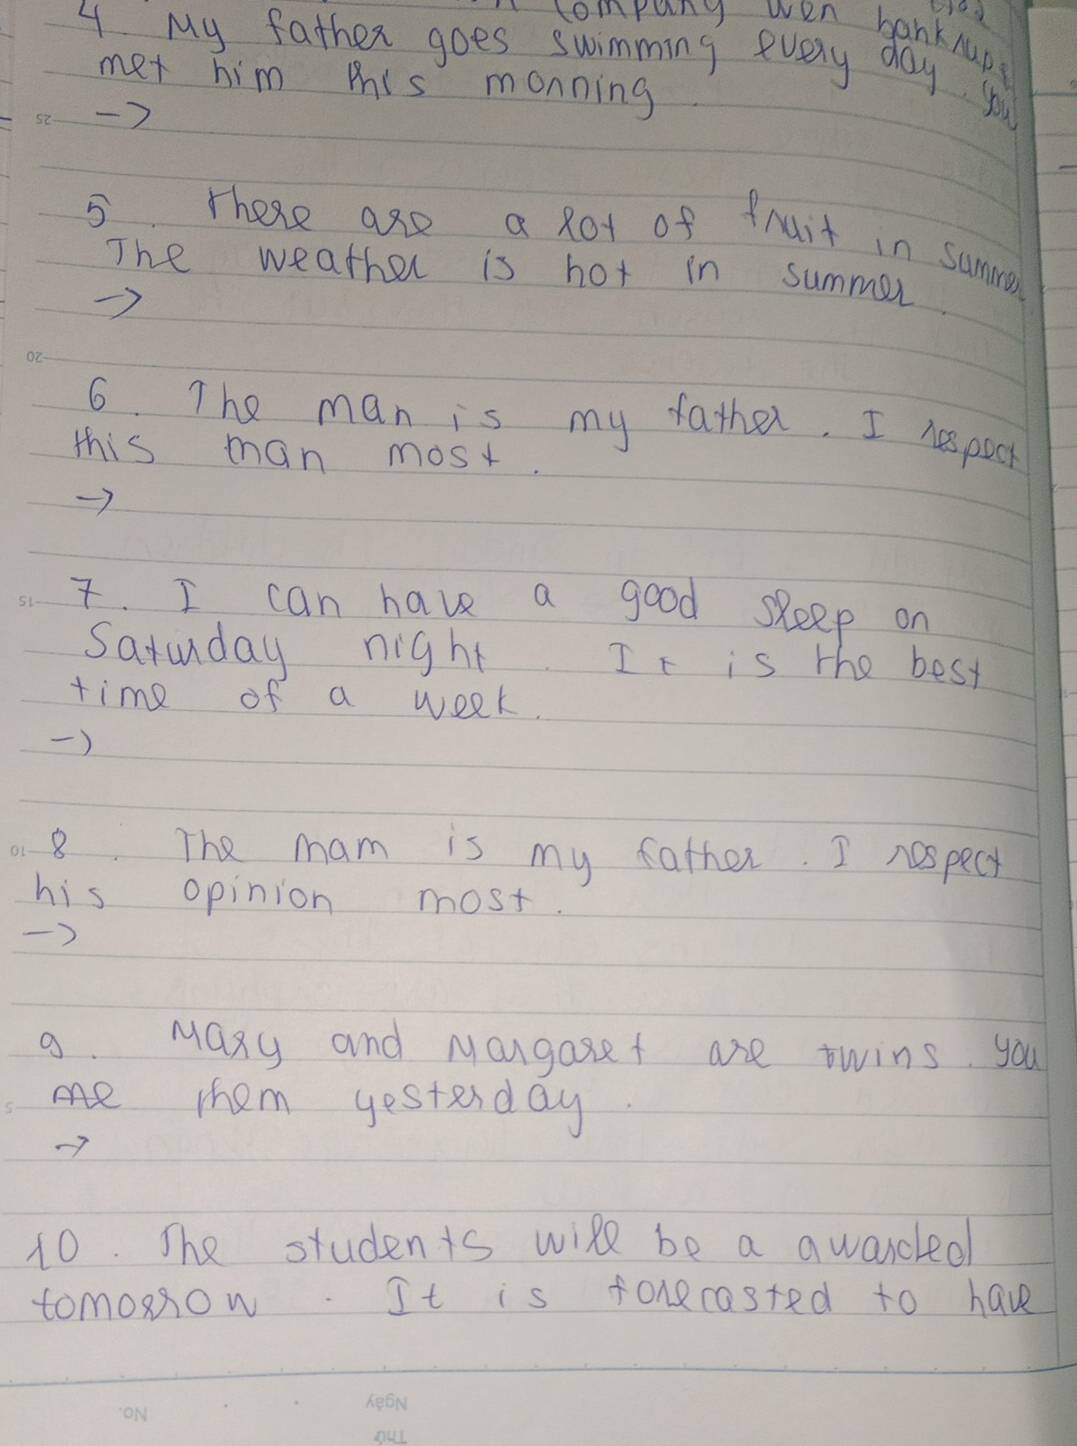 company wen bankrupt
4. My father goes swimming every day. You
met him this morning.
25
->
5. There are a lot of fruit in summer
The weather is hot in summer.
->
20
6. The man is my father. I respect
this man most.
->
15
7. I can have a good sleep on
Saturday night. It is the best
time of a week.
->
10
8. The mam is my father. I respect
his opinion most.
->
9. Mary and Margaret are twins. you
me them yesterday.
5
->
10. The students will be a awarded
tomorrow. It is forecasted to have
No.
Ngày
Thứ